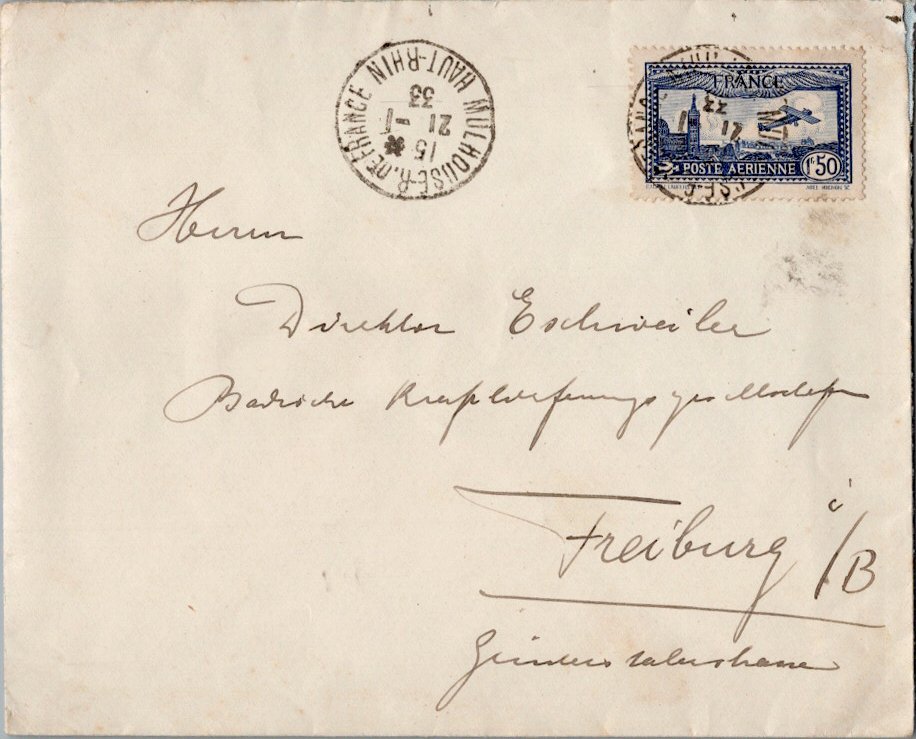 MULHOUSE-R. DE FRANCE HAUT-RHIN
15 *
21 -1
33
FRANCE
POSTE AERIENNE 1F50
21 1
33
Herrn
Direktor Eschweiler
Badische Kraftlieferungsgesellschaft
Freiburg i/B